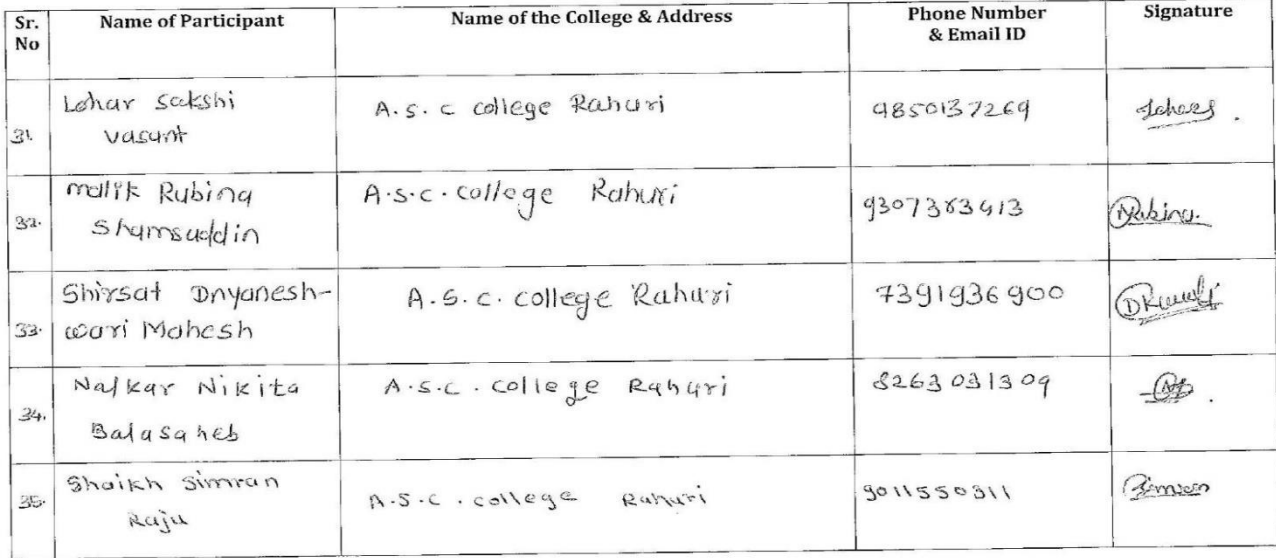 Sr. No | Name of Participant | Name of the College & Address | Phone Number & Email ID | Signature
31. | Lohar Sakshi Vasant | A.S.C College Rahuri | 9850137269
32. | Malik Rubina Shamsuddin | A.S.C. College Rahuri | 9307383413 | Rubina.
33. | Shirsat Dnyanesh-wari Mahesh | A.S.C. College Rahuri | 7391936900
34. | Nalkar Nikita Balasaheb | A.S.C. College Rahuri | 8263031309
35. | Shaikh Simran Raju | A.S.C. College Rahuri | 9011550311 | Simran